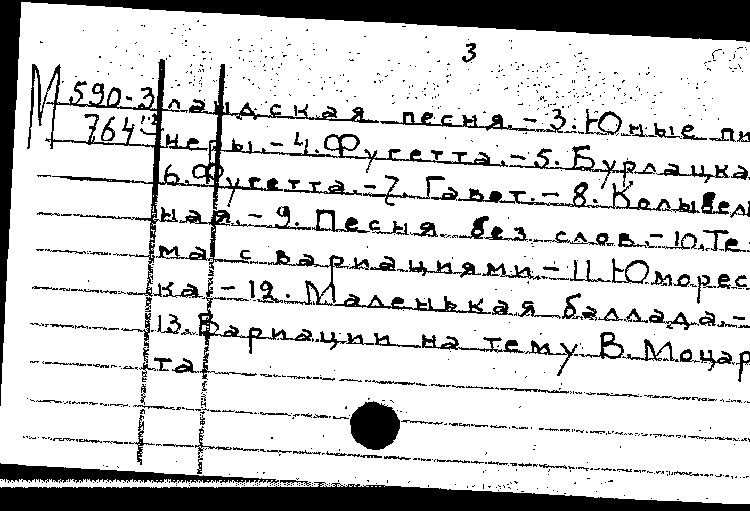 3
М 590-3 ландская песня.- 3. Юные пи
764 неры.- 4. Фугетта.- 5. Бурлацка
6. Фугетта.- 7. Гавот.- 8. Колыбель
ная.- 9. Песня без слов.- 10. Те
ма с вариациями.- 11. Юморес
ка.- 12. Маленькая баллада.-
13. Вариации на тему В. Моцар
та